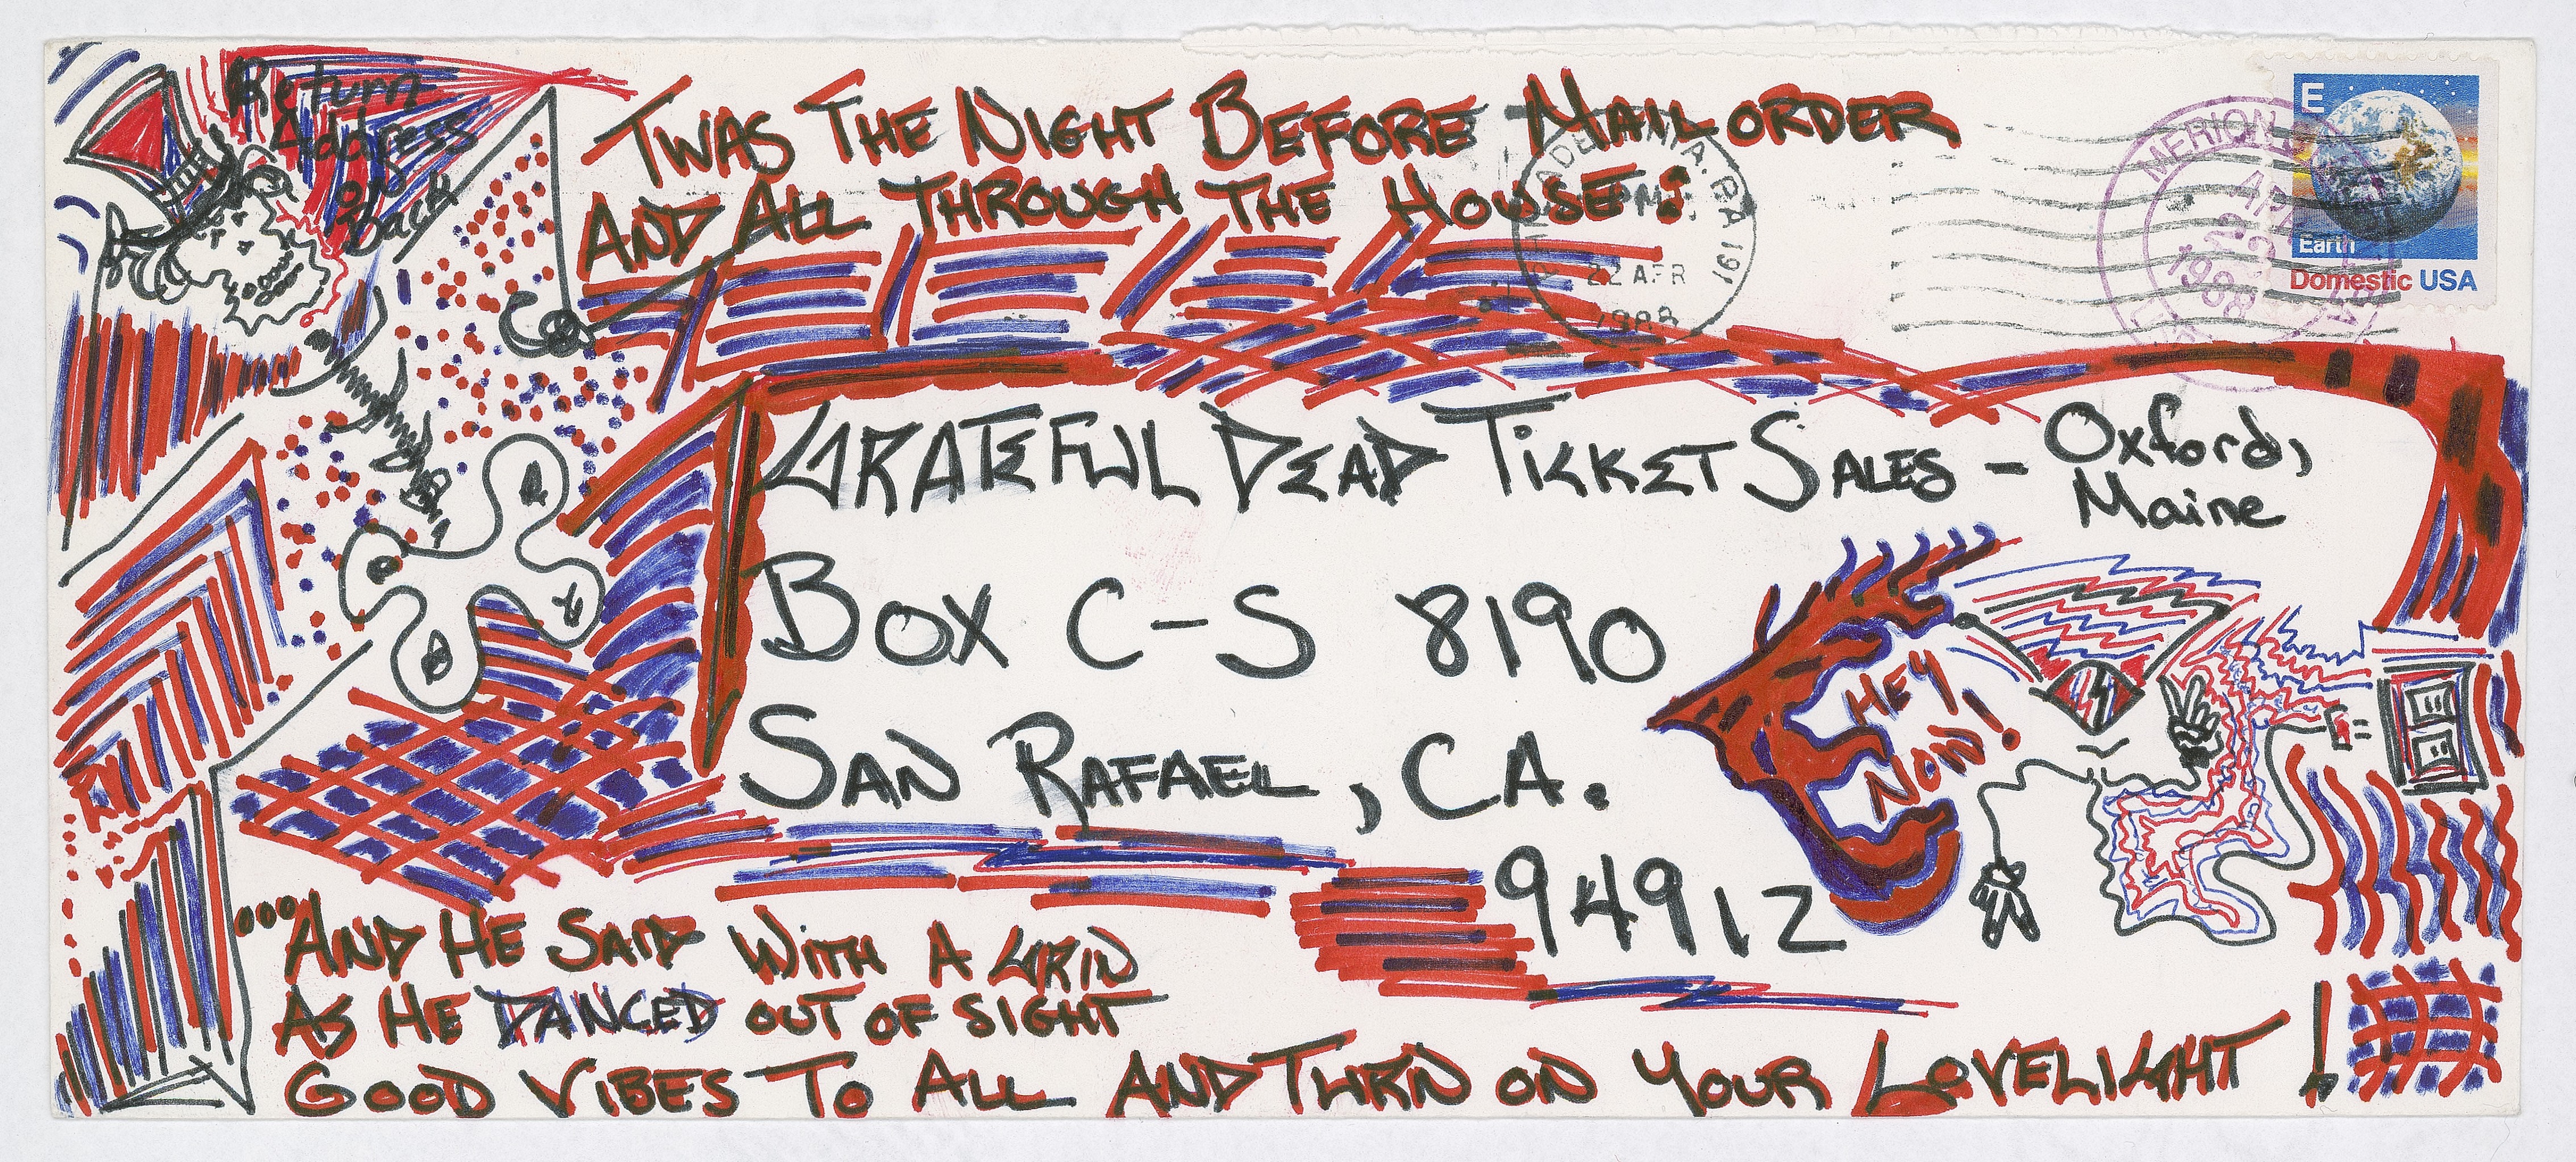 Return
Address
on
Back
TWAS THE NIGHT BEFORE MAIL ORDER
AND ALL THROUGH THE HOUSE:
PHILADELPHIA, PA 191
PM
22 APR
1988
MERION
APR
22
1988
E
Earth
Domestic USA
GRATEFUL DEAD TICKET SALES - Oxford,
Maine
BOX C-S 8190
SAN RAFAEL, CA.
94912
HEY
NOW!
...AND HE SAID WITH A GRIN
AS HE DANCED OUT OF SIGHT
GOOD VIBES TO ALL AND TURN ON YOUR LOVELIGHT!